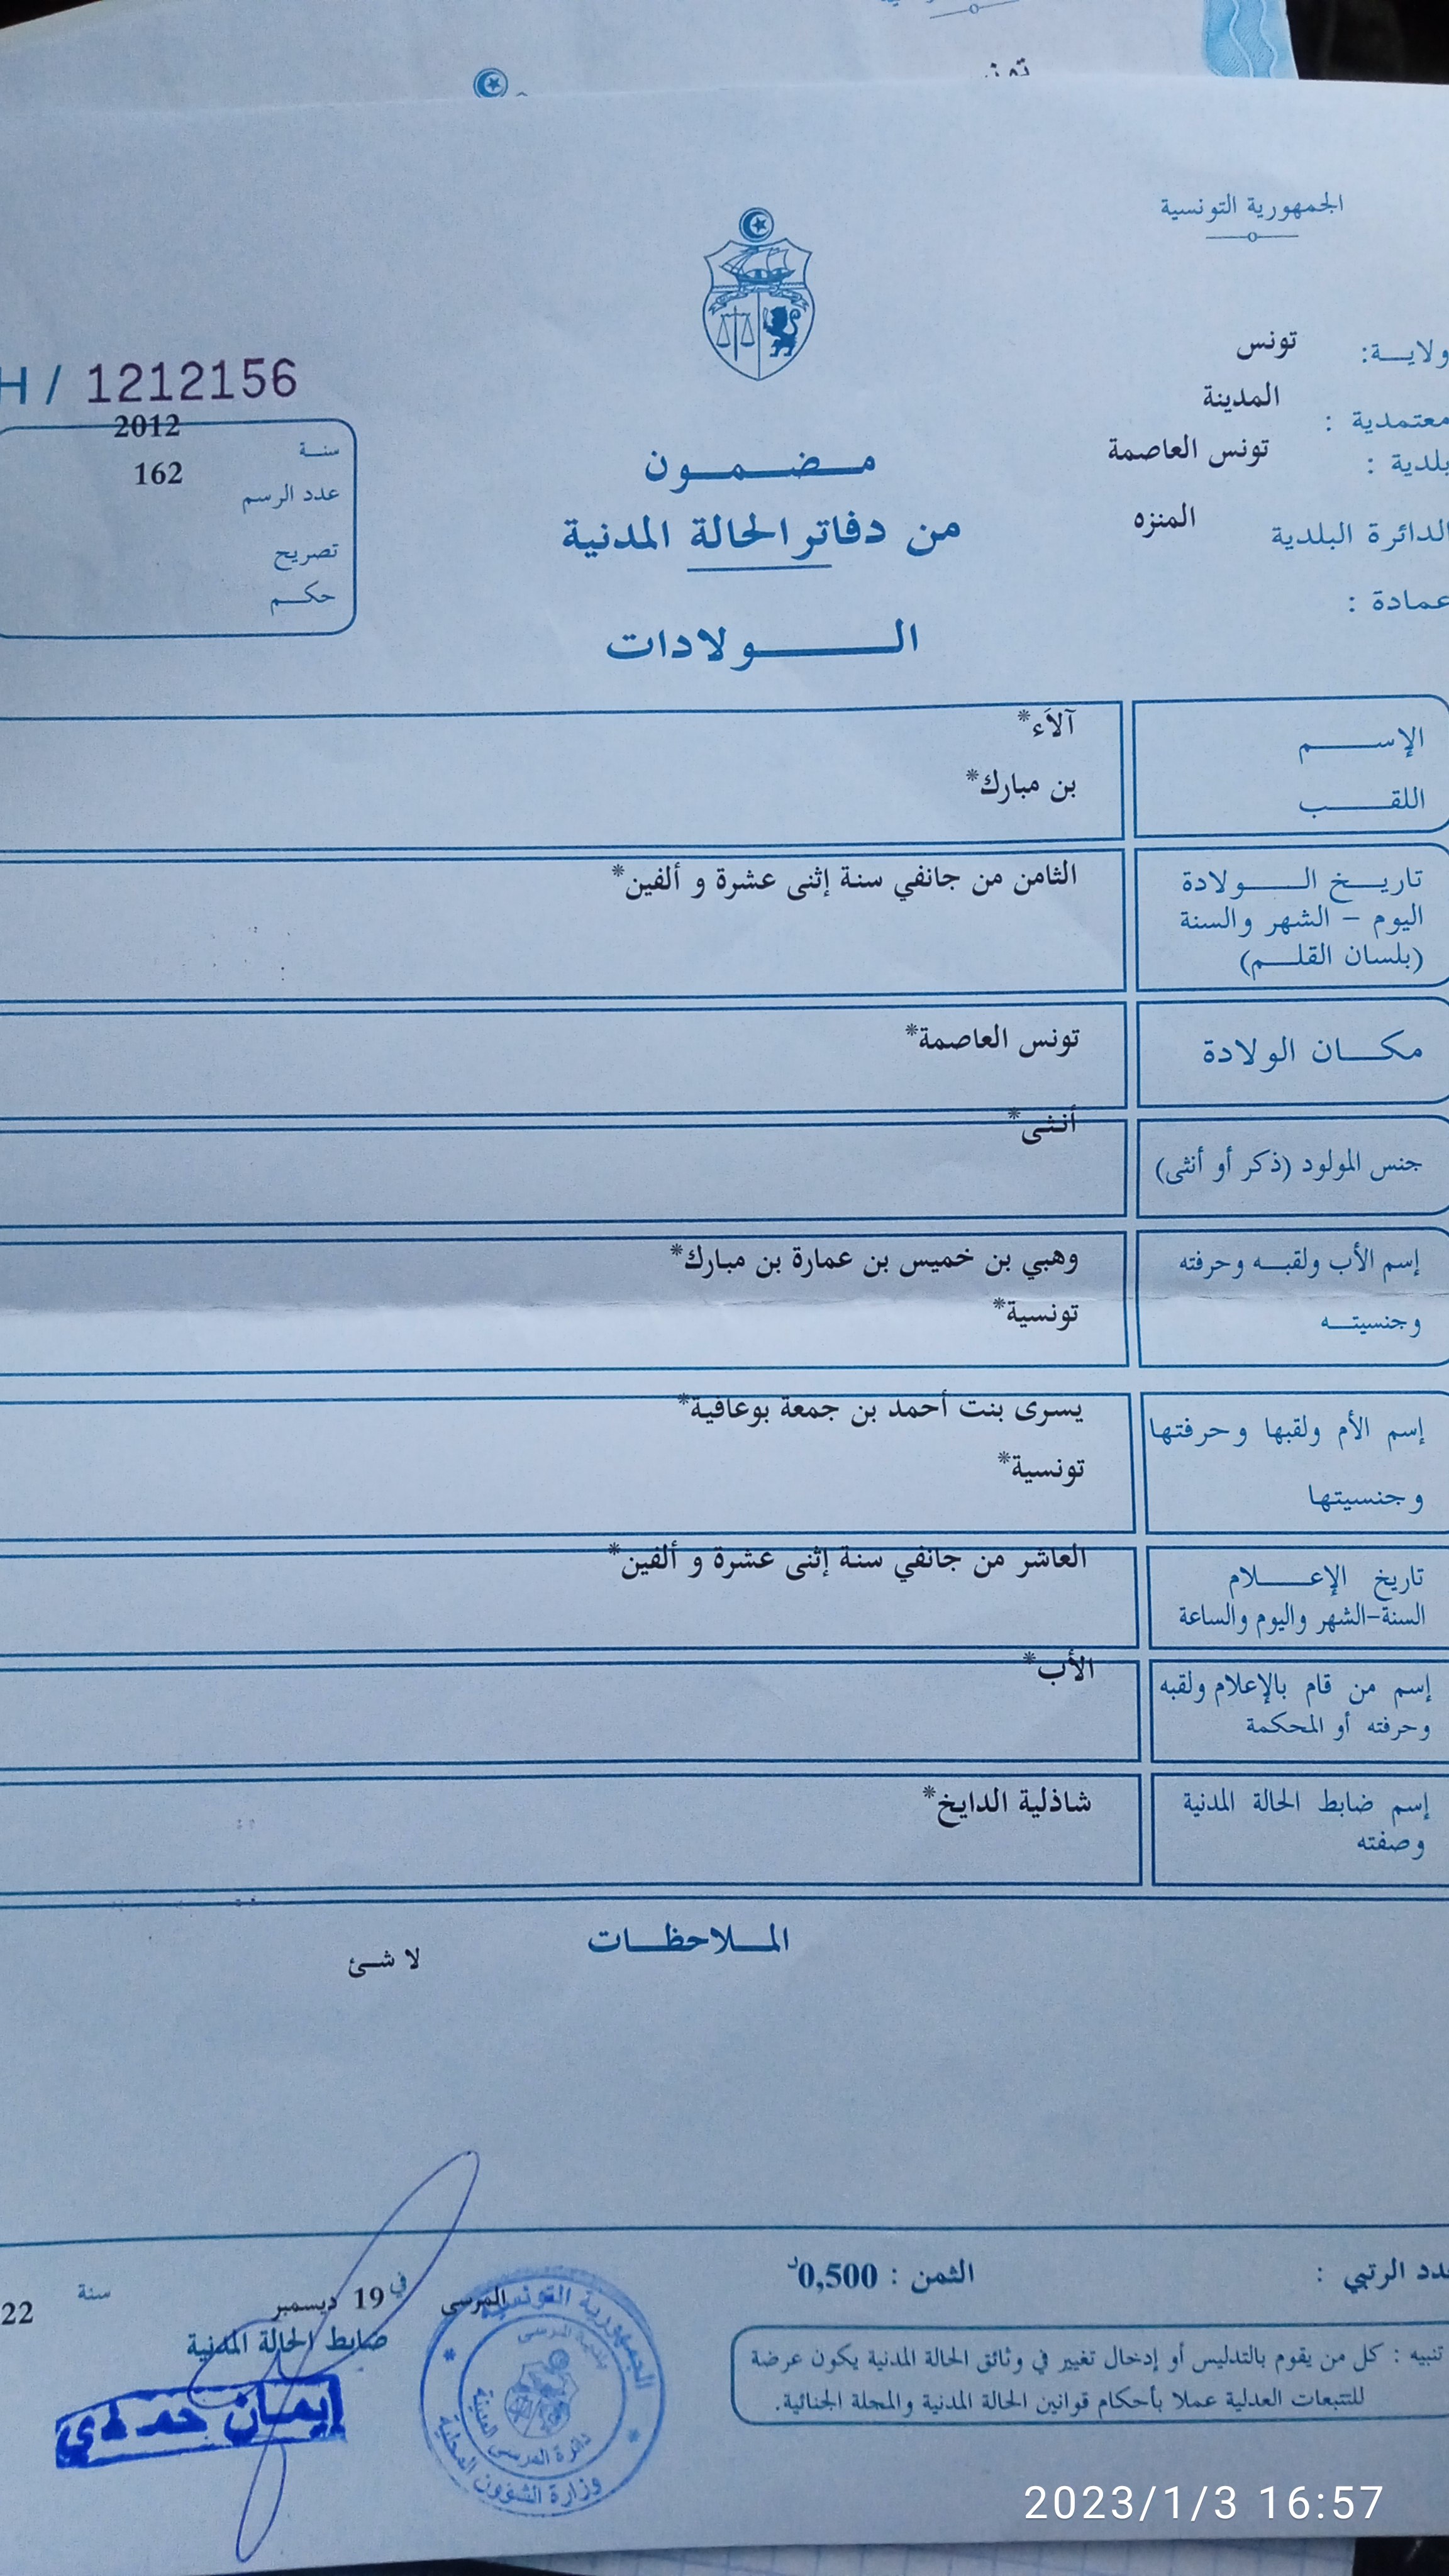 الجمهورية التونسية
ولايـــة: تونس
معتمدية : المدينة
بلدية : تونس العاصمة
الدائرة البلدية المنزه
عمادة :
H / 1212156
سنـة 2012
عدد الرسم 162
تصريح
حكـــم
مـــضـــمـــون
من دفاتر الحالة المدنية
الــــــولادات
الإســـــــم آلاَء*
اللقـــــــب بن مبارك*
تاريـــخ الـــــولادة الثامن من جانفي سنة إثنى عشرة و ألفين*
اليوم – الشهر والسنة
(بلسان القلـــم)
مكـــان الولادة تونس العاصمة*
جنس المولود (ذكر أو أنثى) أنثى*
إسم الأب ولقبـــه وحرفته وهبي بن خميس بن عمارة بن مبارك*
وجنسيتـــه تونسية*
إسم الأم ولقبها وحرفتها يسرى بنت أحمد بن جمعة بوعافية*
وجنسيتها تونسية*
تاريخ الإعـــــلام العاشر من جانفي سنة إثنى عشرة و ألفين*
السنة-الشهر واليوم والساعة
إسم من قام بالإعلام ولقبه الأب*
وحرفته أو المحكمة
إسم ضابط الحالة المدنية شاذلية الدايخ*
وصفته
المـــلاحظـــات
لا شئ
عدد الرتبي :
الثمن : 0,500د
المرسى في 19 ديسمبر سنة 22
ضابط الحالة المدنية
إيمان حمدي
الجمهورية التونسية
بلدية المرسى
دائرة المرسى المدينة
وزارة الشؤون المحلية
تنبيه : كل من يقوم بالتدليس أو إدخال تغيير في وثائق الحالة المدنية يكون عرضة
للتتبعات العدلية عملا بأحكام قوانين الحالة المدنية والمجلة الجنائية.
2023/1/3 16:57